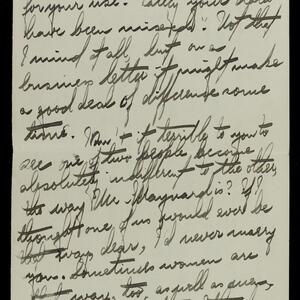 for your use.
have been missed". Not that
I mind it all, but on a
business letter it might make
a good deal of difference some
time. Isn't it terribly to you to
see one of two people become
absolutely indifferent to the other
the way Mr. Maynard is? If I
thought one of us would ever be
that way dear, I'd never marry
you. Sometimes women are
that way, too, as well as guys,